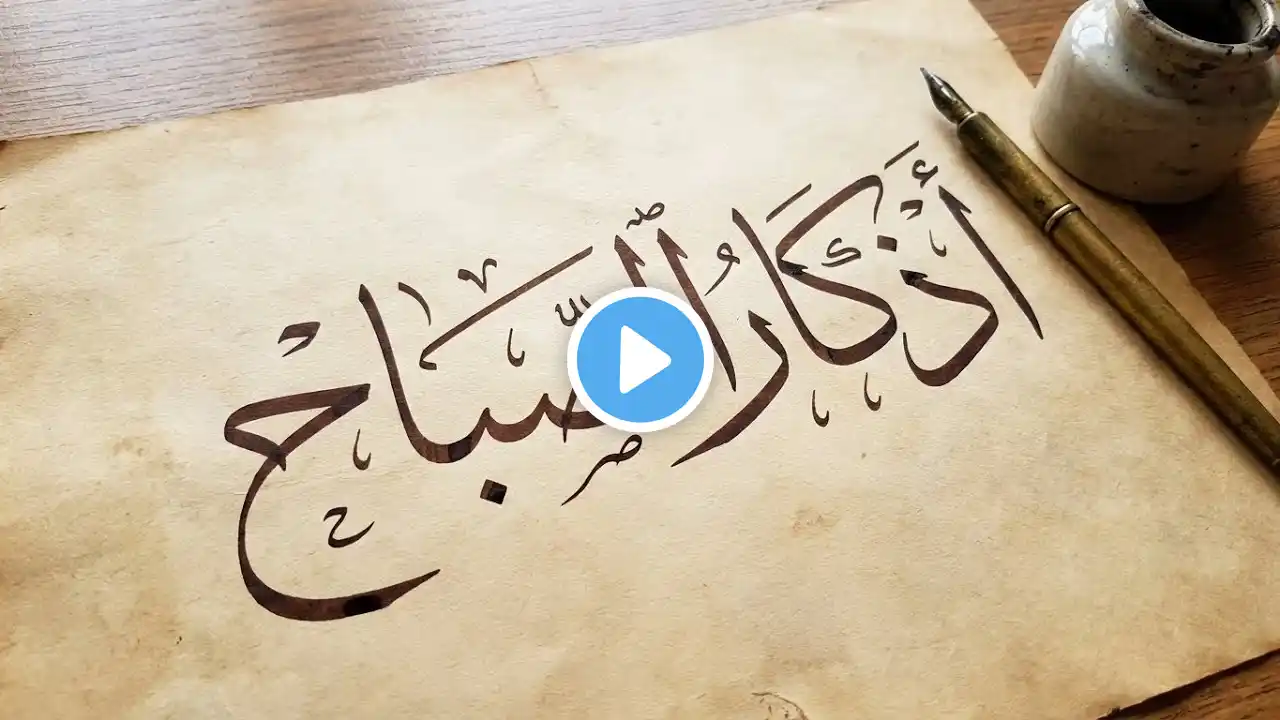 أذكار الصباح